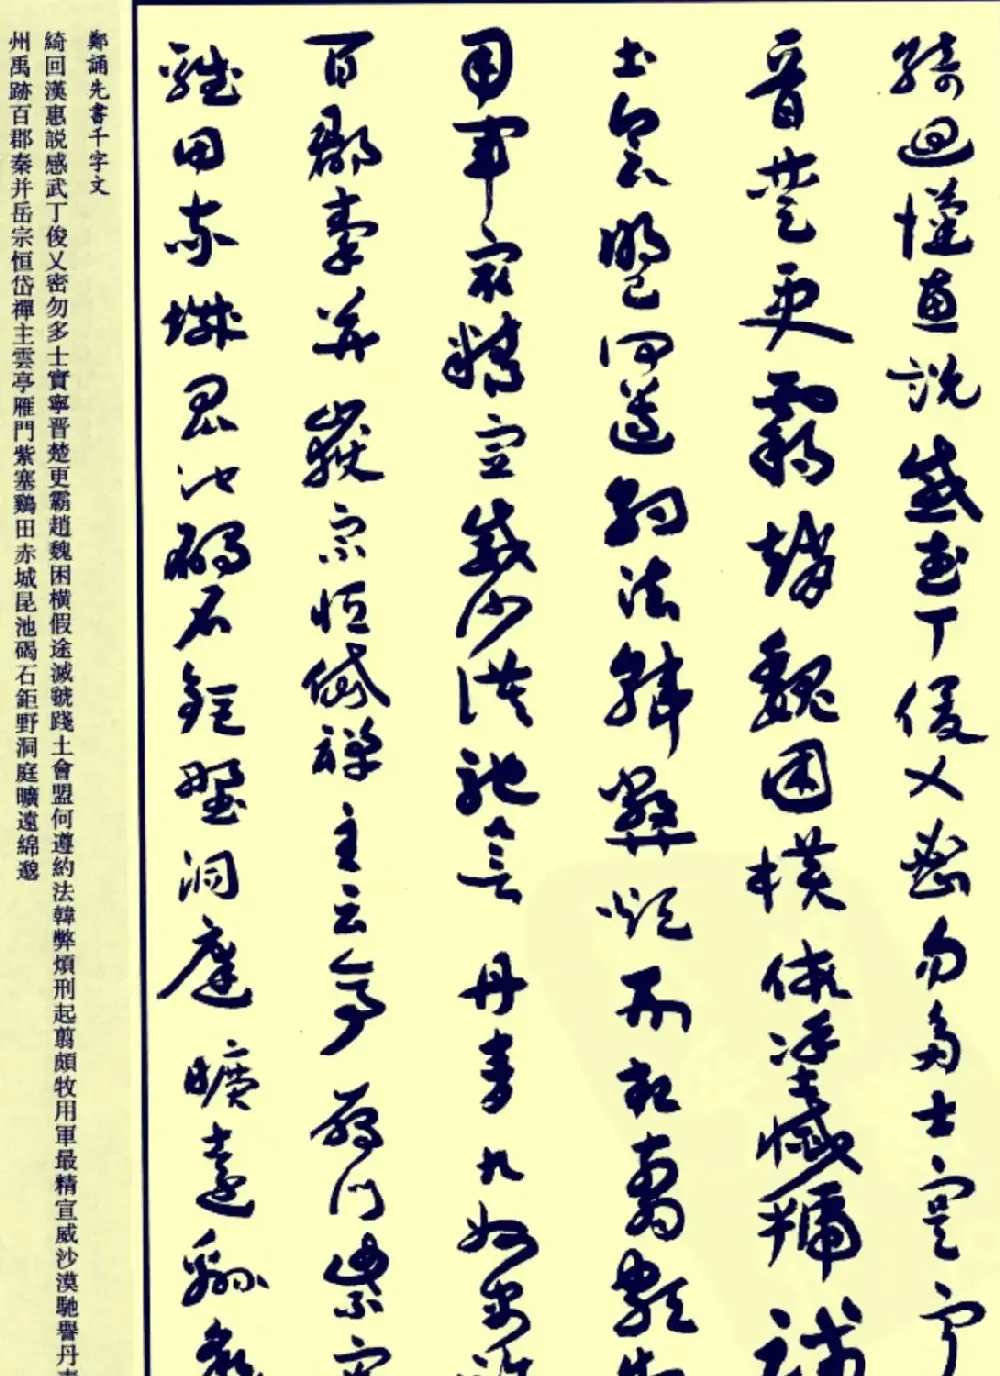 綺迴漢惠說感武丁俊乂密勿多士寔寧
晉楚更霸趙魏困橫假途滅虢踐
土會盟何遵約法韓弊煩刑起翦頗牧
用軍最精宣威沙漠馳譽丹青九州禹跡
百郡秦并嶽宗恒岱禪主云亭雁門紫塞
雞田赤城昆池碣石鉅野洞庭曠遠綿邈
鄭誦先書千字文
綺回漢惠説感武丁俊乂密勿多士實寧晋楚更霸趙魏困橫假途滅虢踐土會盟何遵約法韓弊煩刑起翦頗牧用軍最精宣威沙漠馳譽丹青
州禹跡百郡秦并岳宗恒岱禪主雲亭雁門紫塞鷄田赤城昆池碣石鉅野洞庭曠遠綿邈